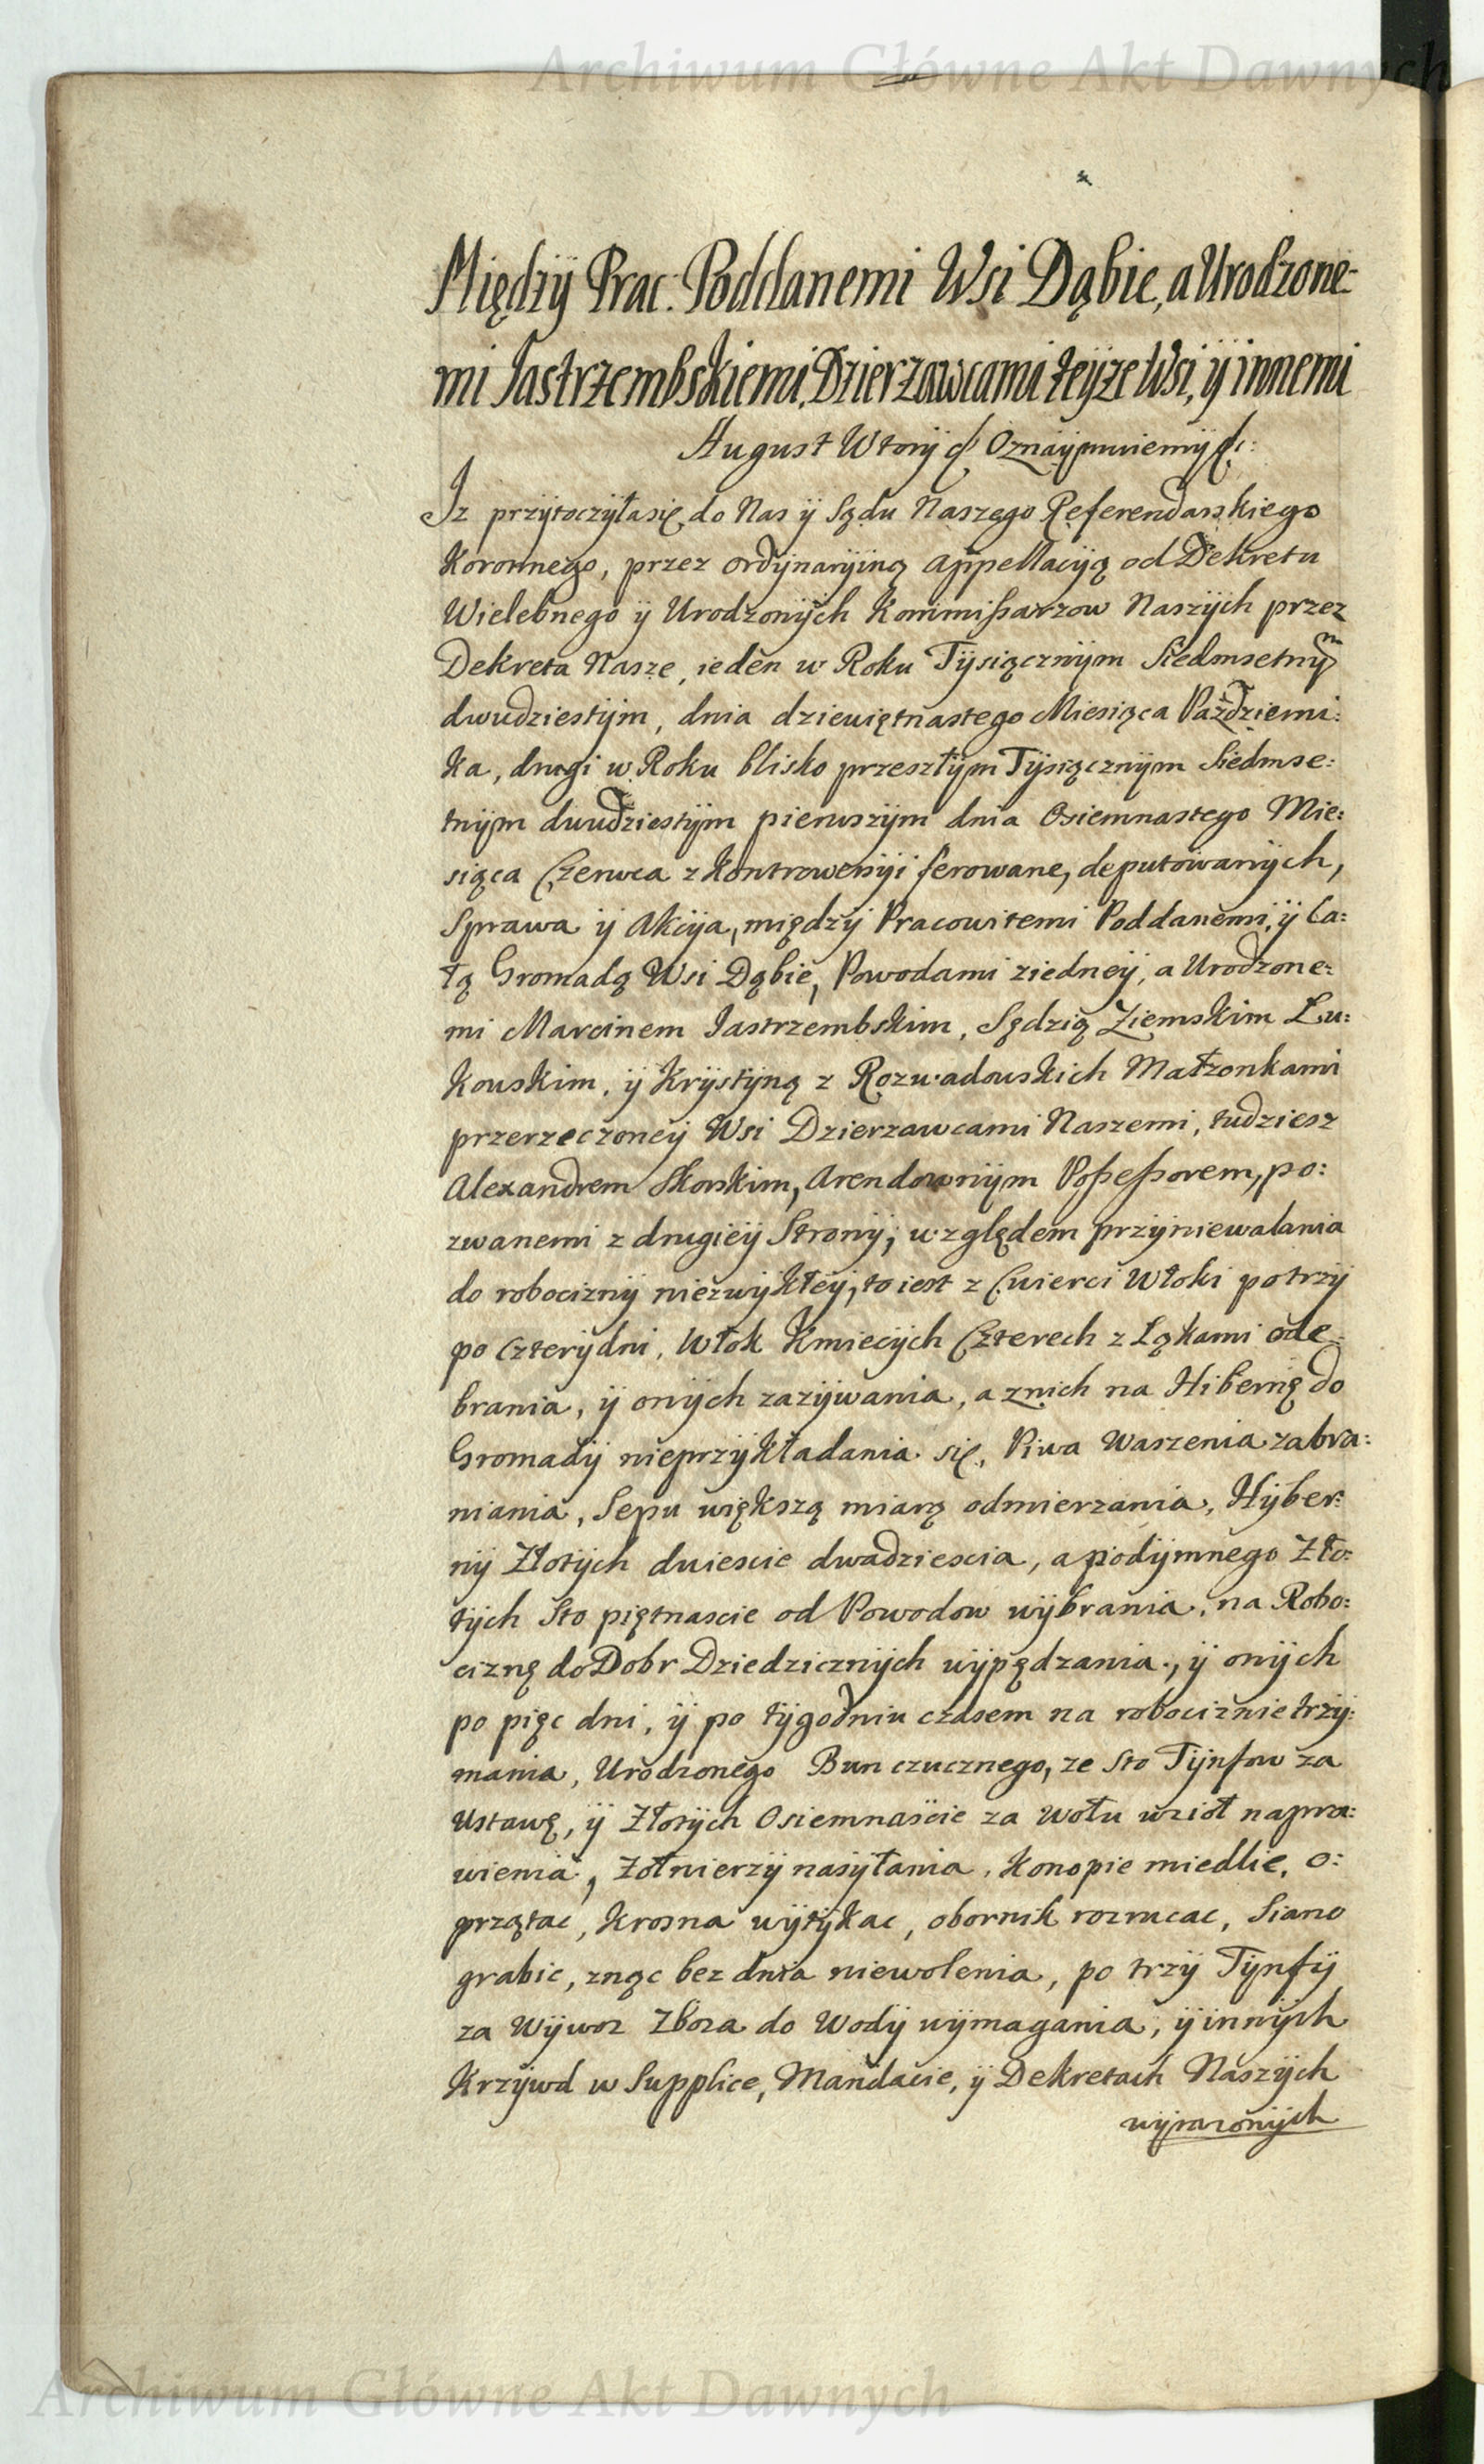 Archiwum Główne Akt Dawnych
Między Prac: Poddanemi Wsi Dąbie, a Urodzone-
mi Jastrzembskiemi, Dzierzawcami teyze Wsi, ÿ innemi
August Wtorÿ &c Oznaÿmuiemÿ &c:
Jz przÿtoczÿłasię do Nas ÿ Sądu Naszego Referendarskiego
Koronnego, przez ordÿnarÿiną appellacÿą od Dekretu
Wielebnego ÿ Urodzonÿch Kommißarzow Naszÿch przez
Dekreta Nasze, ieden w Roku Tÿsiącznÿm Siedmsetnÿm
dwudziestÿm, dnia dziewiętnastego Miesiąca Październi:
ka, drugi w Roku blisko przeszłÿm Tÿsiącznÿm Siedmse:
tnÿm dwudziestÿm pierwszÿm dnia Osiemnastego Mie:
siąca Czerwca z kontrowersÿi ferowane, deputowanÿch,
Sprawa ÿ Akcÿa, międzÿ Pracowitemi Poddanemi, ÿ Ca:
łą Gromadą Wsi Dąbie, Powodami ziedneÿ, a Urodzone:
mi Marcinem Jastrzembskim, Sędzią Ziemskim Łu:
kowskim, ÿ Krÿstÿną z Rozwadowskich Małzonkami
przerzeczoneÿ Wsi Dzierzawcami Naszemi, tudziesz
Alexandrem Skorskim, Arendownÿm Poßeßorem, po:
zwanemi z drugieÿ Stronÿ, względem przÿniewalania
do robociznÿ niezwÿkłeÿ, to iest z Cwierci Włoki po trzÿ
po czterÿ dni, Włok Kmiecÿch Czterech z Łąkami ode:
brania, ÿ onÿch zazÿwania, a znich na Hibernę do
Gromadÿ nieprzÿkładania się, Piwa Waszenia zabra:
niania, Sepu większą miarą odmierzania, Hÿber:
nÿ Złotÿch dwiescie dwadziescia, a podÿmnego Zło:
tÿch Sto piętnascie od Powodow wÿbrania, na Robo:
ciznę do Dobr Dziedzicznÿch wÿpędzania, ÿ onÿch
po pięc dni, ÿ po tÿgodniu czasem na robociznie trzÿ:
mania, Urodzonego Bunczucznego, ze Sto Tÿnfow za
Ustawę, ÿ Złotÿch Osiemnaście za Wołu wziół napra:
wienia, Zołnierzÿ nasÿłania, Konopie miedlic, o:
przątac, Krosna wÿtÿkac, obornik rozrucac, Siano
grabic, znąc bez dnia niewolenia, po trzÿ Tÿnfÿ
za Wÿwoz Zboza do Wodÿ wÿmagania, ÿ innÿch
Krzÿwd w Supplice, Mandacie, ÿ Dekretach Naszÿch
wÿrazonÿch
Archiwum Główne Akt Dawnych